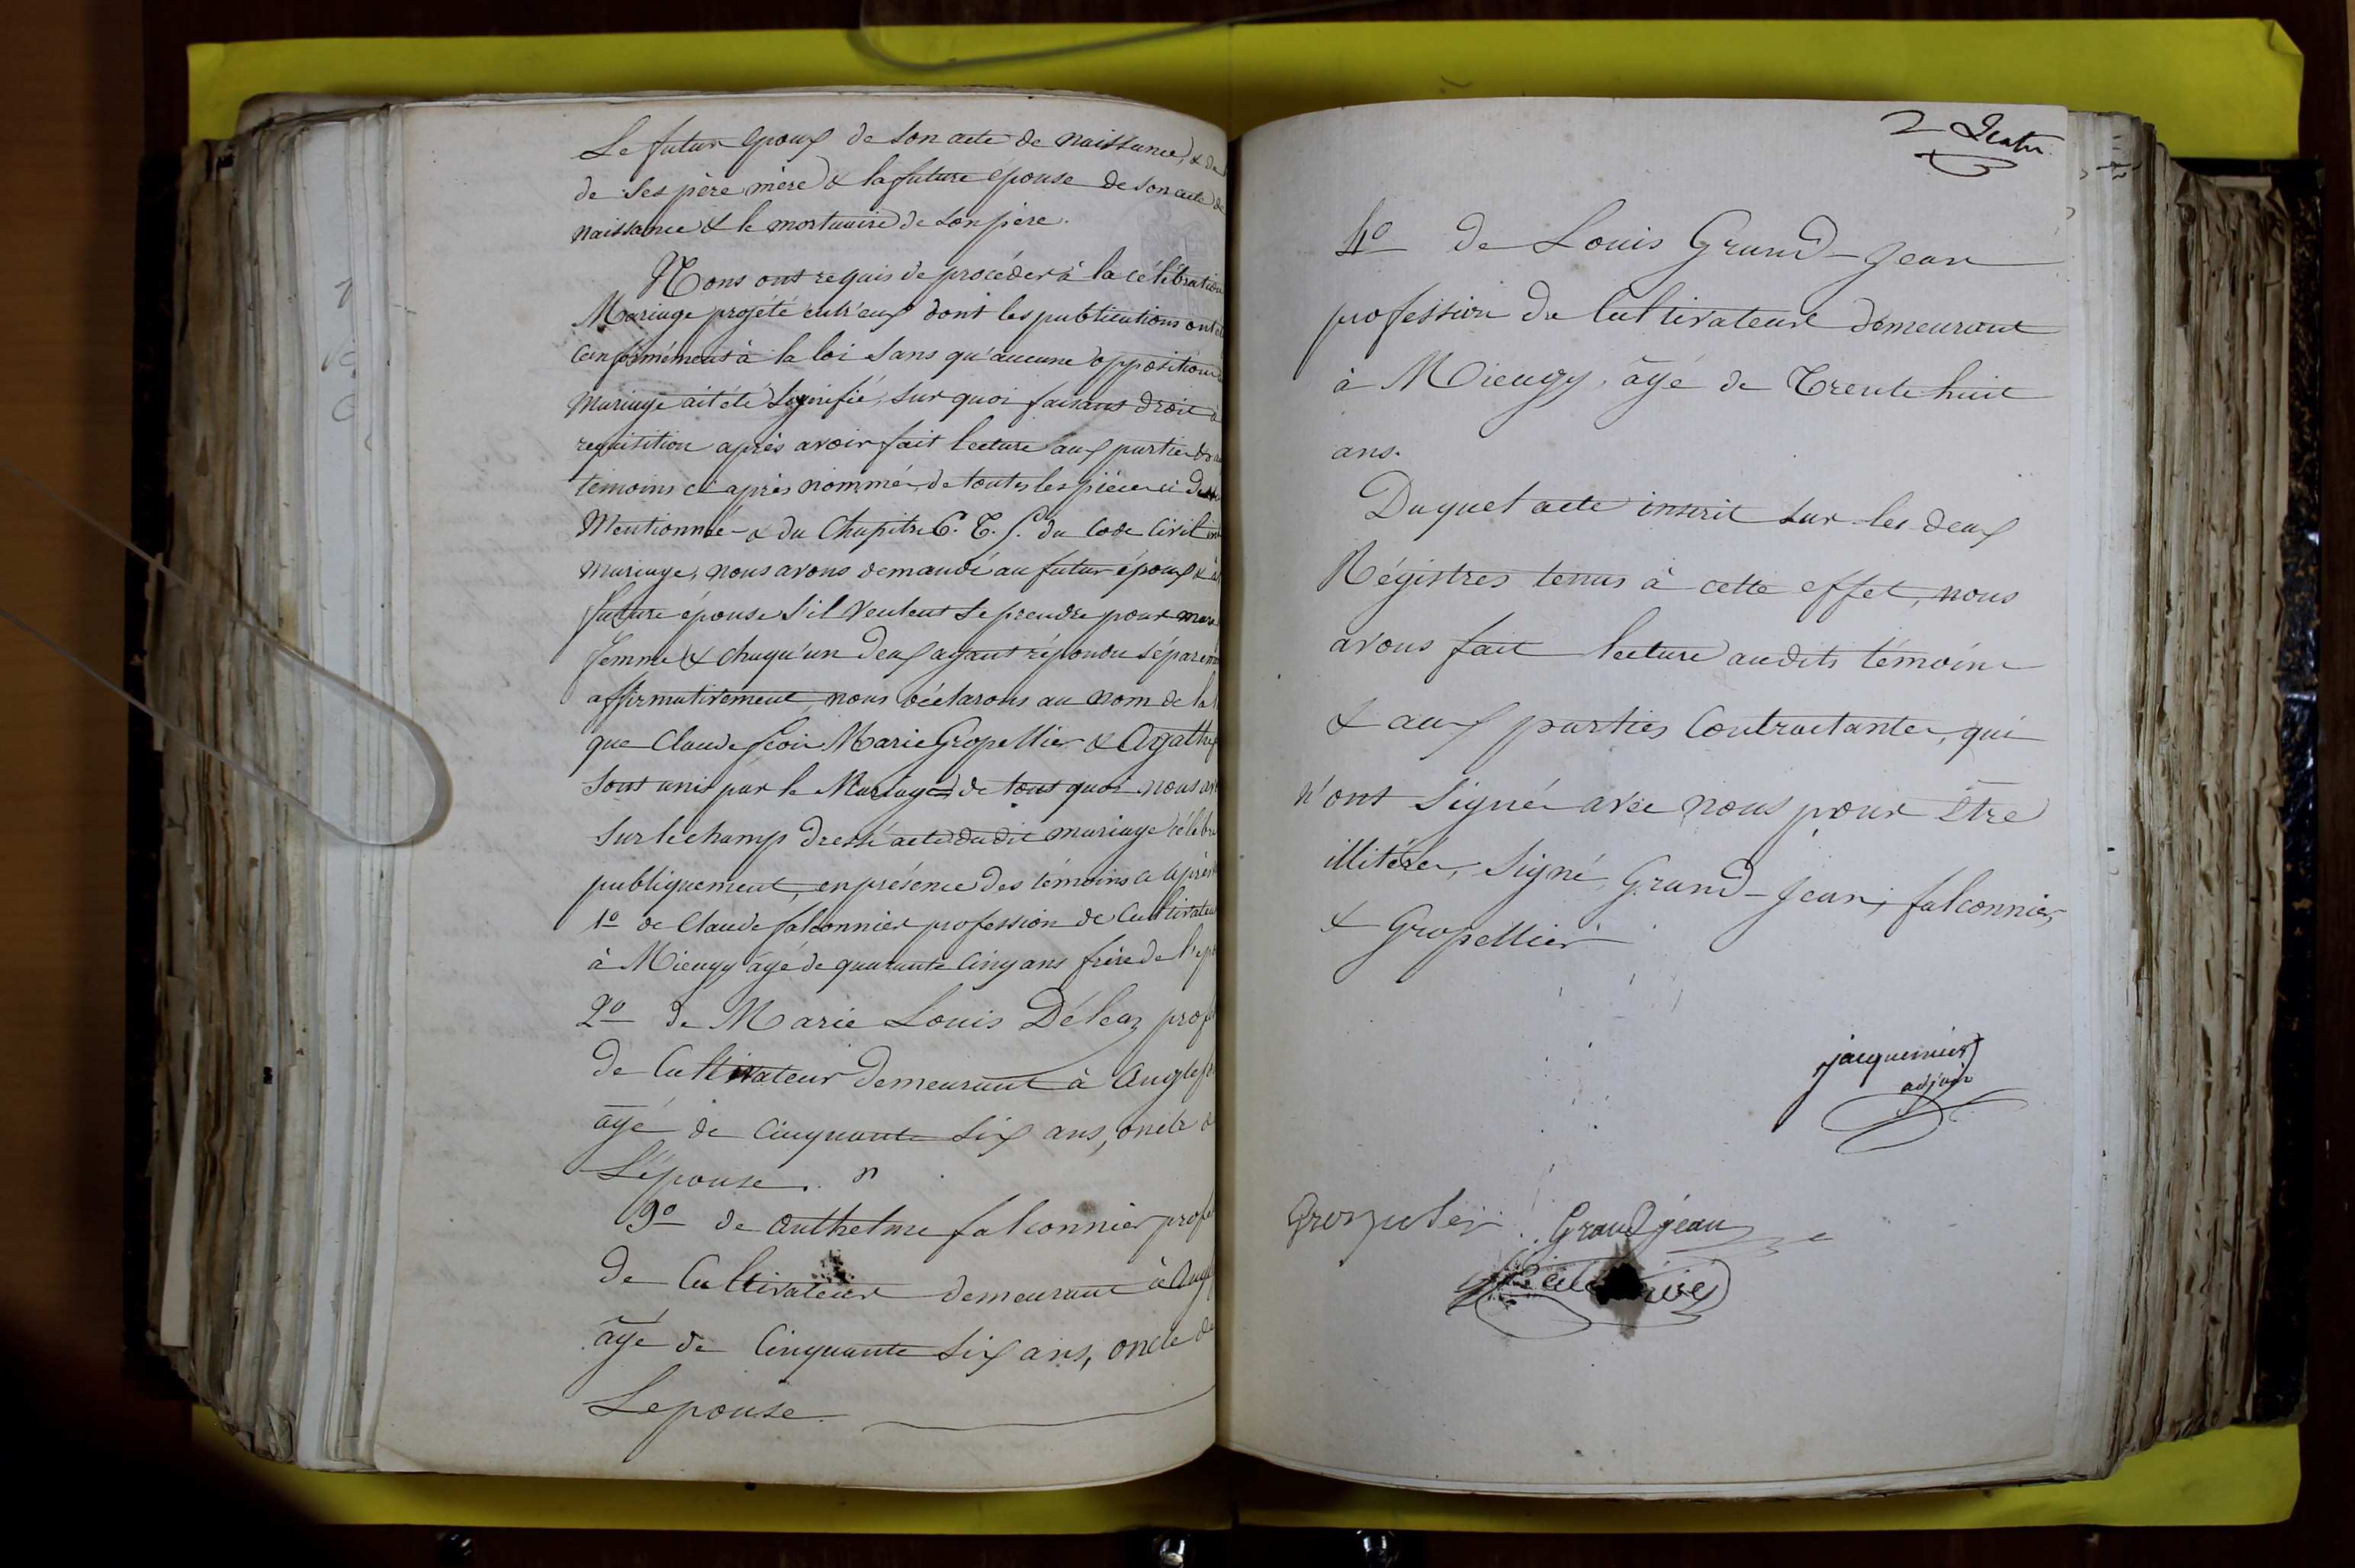 Le futur epoux de son acte de naissance, & de
de ses père mère & la future épouse de son acte de
naissance & le mortuaire de son père.
Nous ont requis de procéder à la célébration
Mariage projété entr'eux dont les publications ont
Conformément à la loi sans qu'aucune opposition
Mariage ait été signifié, sur quoi faisant droit à
requisition après avoir fait lecture aux parties &
témoins ci après nommés, de toutes les pièces ci des
Mentionnée & du Chapitre 6. T. 5. du Code Civil
Mariage, nous avons demandé au futur époux & à
future épouse s'il veulent se prendre pour mari
femme & chaqu'un deux ayant répondu séparem
affirmativement, nous déclarons au nom de la
que Claude Marie Gropellier & Agathe
Sont unis par le Mariage de tout quoi nous av
sur le champ dressé acte du dit mariage célébré
publiquement, en présence des témoins ci après
1º de Claude falconnier profession de Cultivateur
à Mieugy âgé de quarante Cinq ans frère de l'ép
2º de Marie Louis Déléaz prof
de Cultivateur demeurant à Anglef
âgé de Cinquante Six ans, oncle d
L'épouse.
3º de Anthelme falconnier prof
de Cultivateur demeurant à Ang
âgé de Cinquante Six ans, oncle de
Lepouse.
2
4º de Louis Grand-Jean
profession de Cultivateur demeurant
à Mieugy, âgé de Trente huit
ans.
Duquel acte inscrit sur les deux
Régistres tenus à cette effet, nous
avons fait lecture audits témoins
& aux parties Contractantes, qui
n'ont signés avec nous pour être
illitérés, Signé Grand-Jean, falconnier,
& Gropellier
jacquemier
adjoin
Grandjean